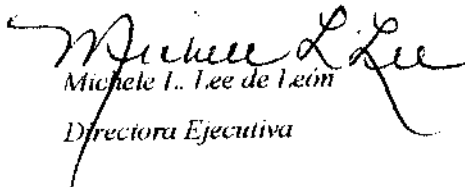 Michele L. Lee
Michele L. Lee de León
Directora Ejecutiva